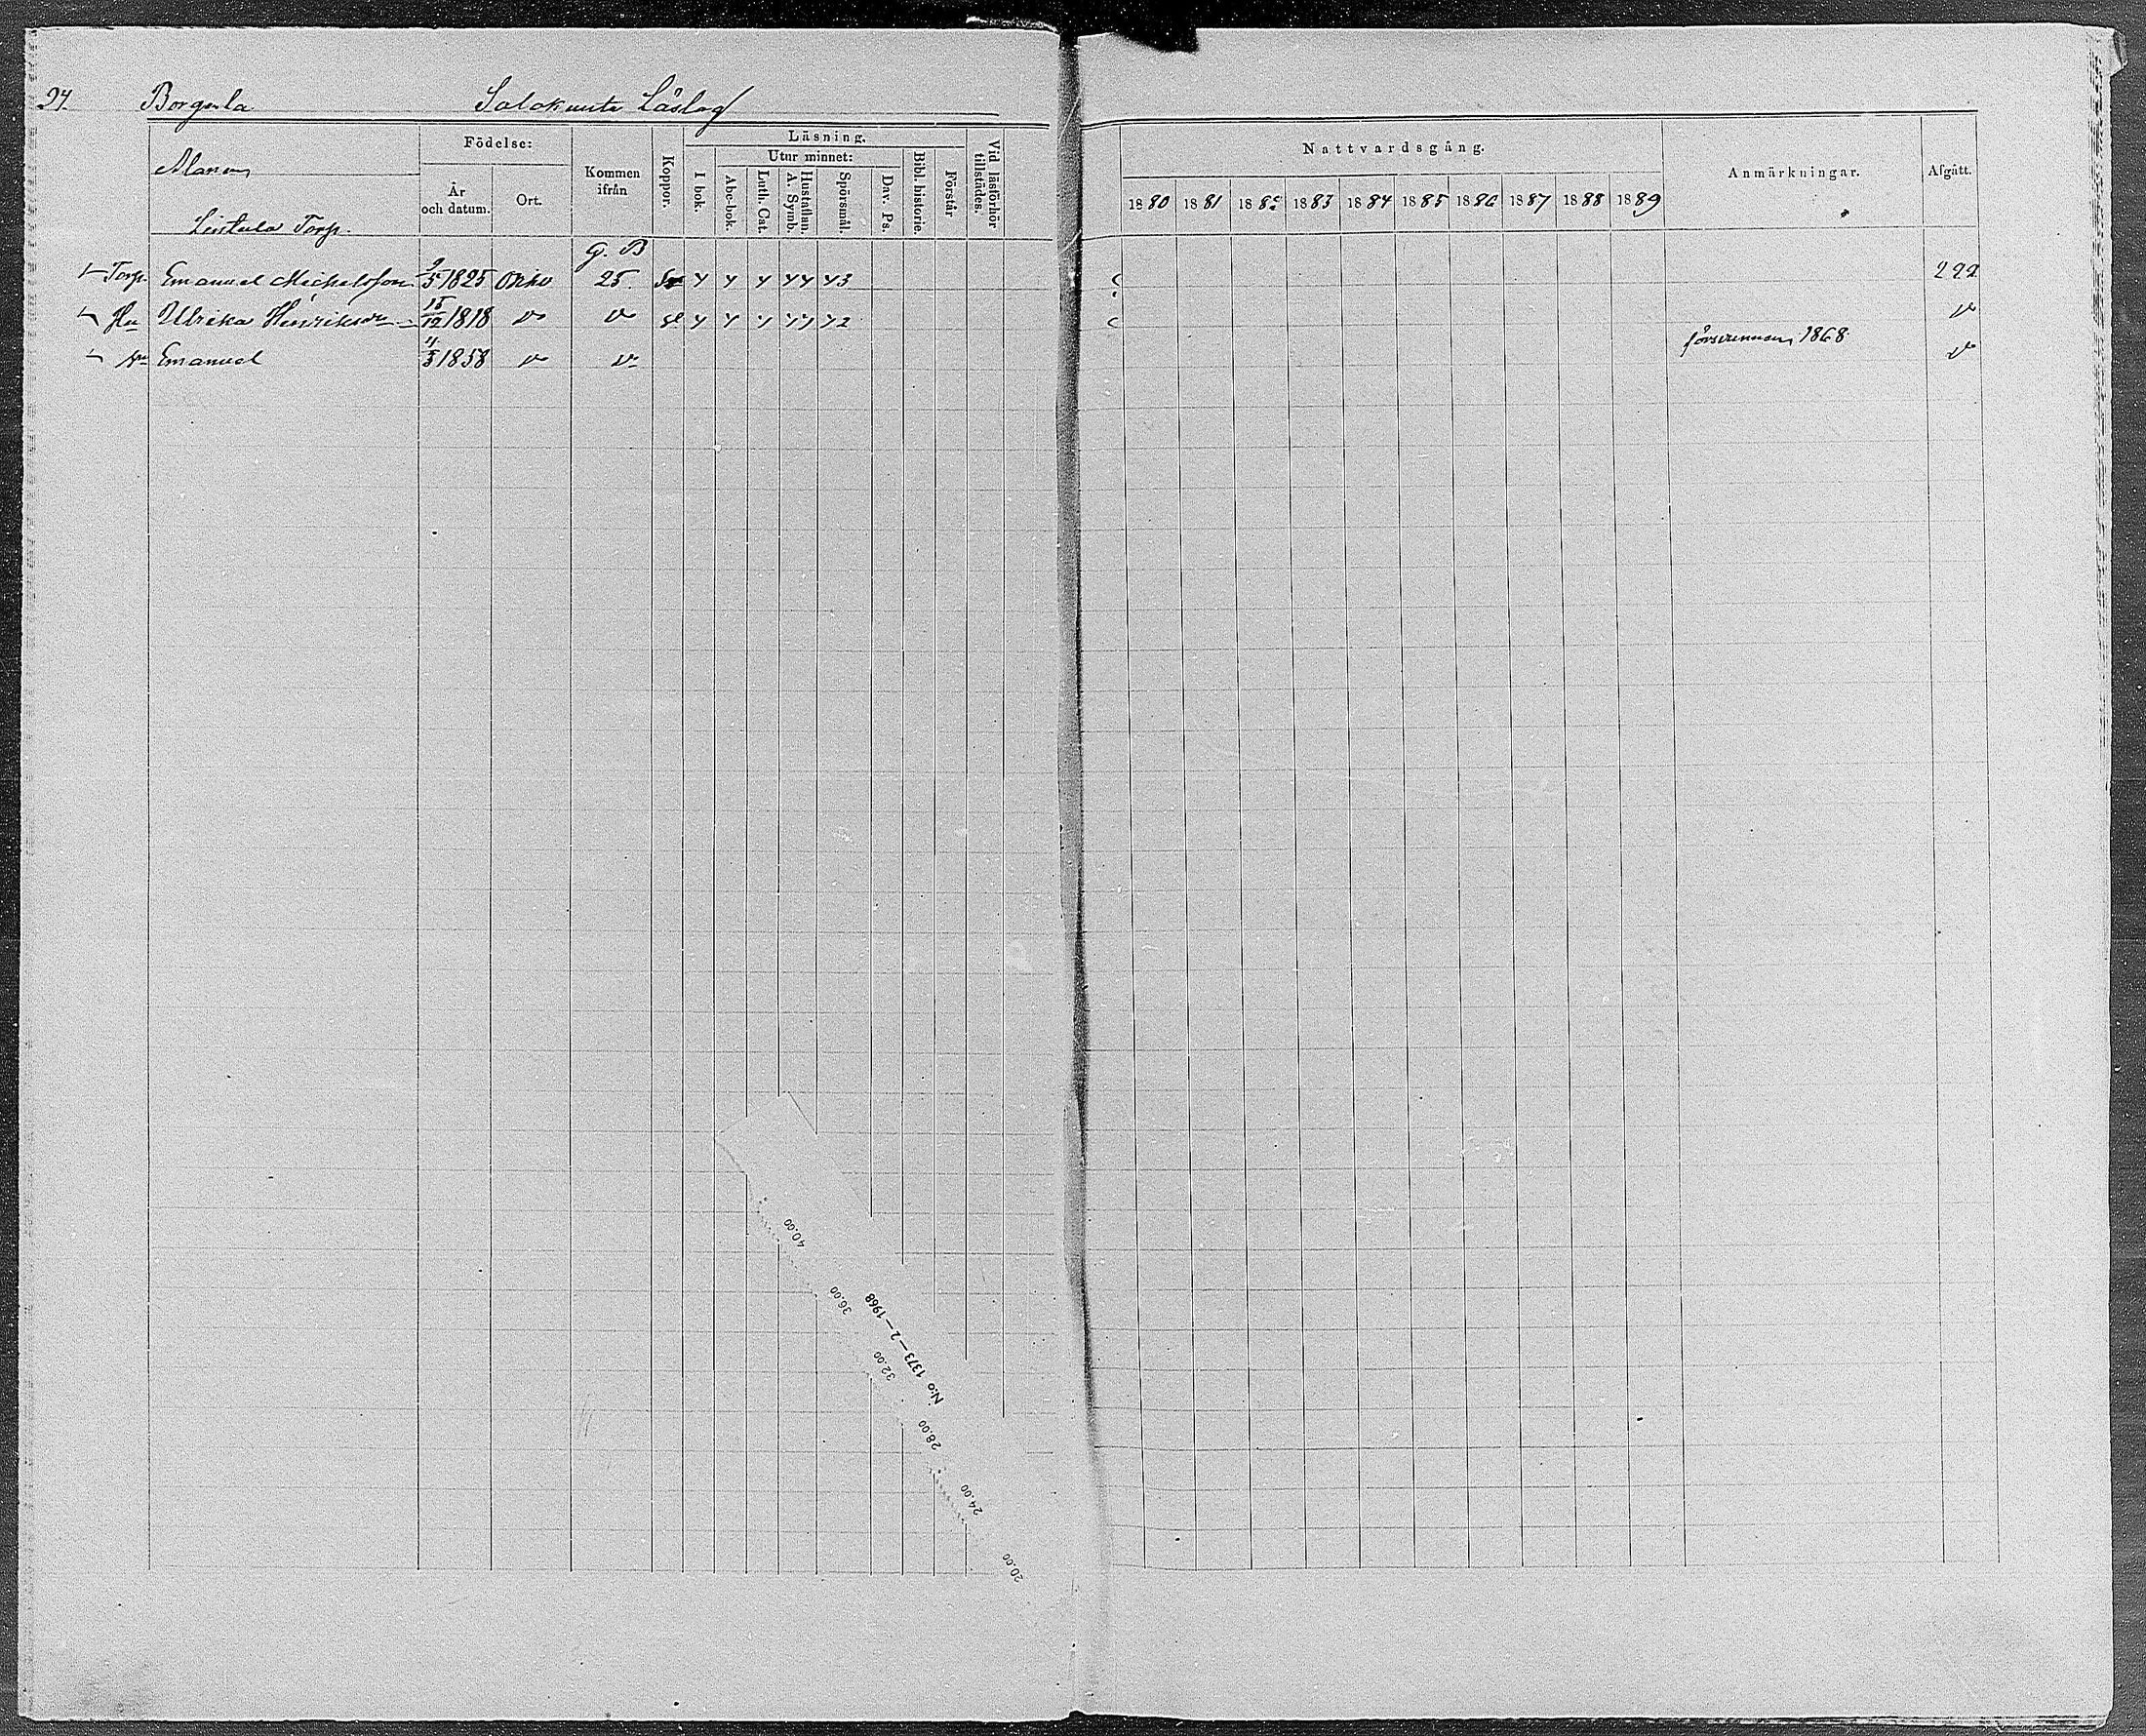 94 Borgula Salokunta Läslag
Födelse:
Läsning.
Utur minnet:
Alanen
År och datum.
Ort.
Kommen ifrån
Koppor.
I bok.
Abc-bok.
Luth. Cat.
Hustaflan. A. Symb.
Spörsmål.
Dav. Ps.
Bibl. historie.
Förstår
Vid läsförhör tillstädes.
Nattvardsgång.
1880 1881 1882 1883 1884 1885 1886 1887 1888 1889
Anmärkningar.
Afgått.
Leistula Torp.
G. B
Torp. Emanuel Michelsson 9/5 1825 25. 4 4 4 44 43 222
Hu Ulrika Henriksdr 15/12 1818 4 4 4 44 42
försvunnen 1868
Sn Emanuel 4/3 1858
40.00
36.00
32.00
28.00
24.00
20.00
N:o 1373—2—1968